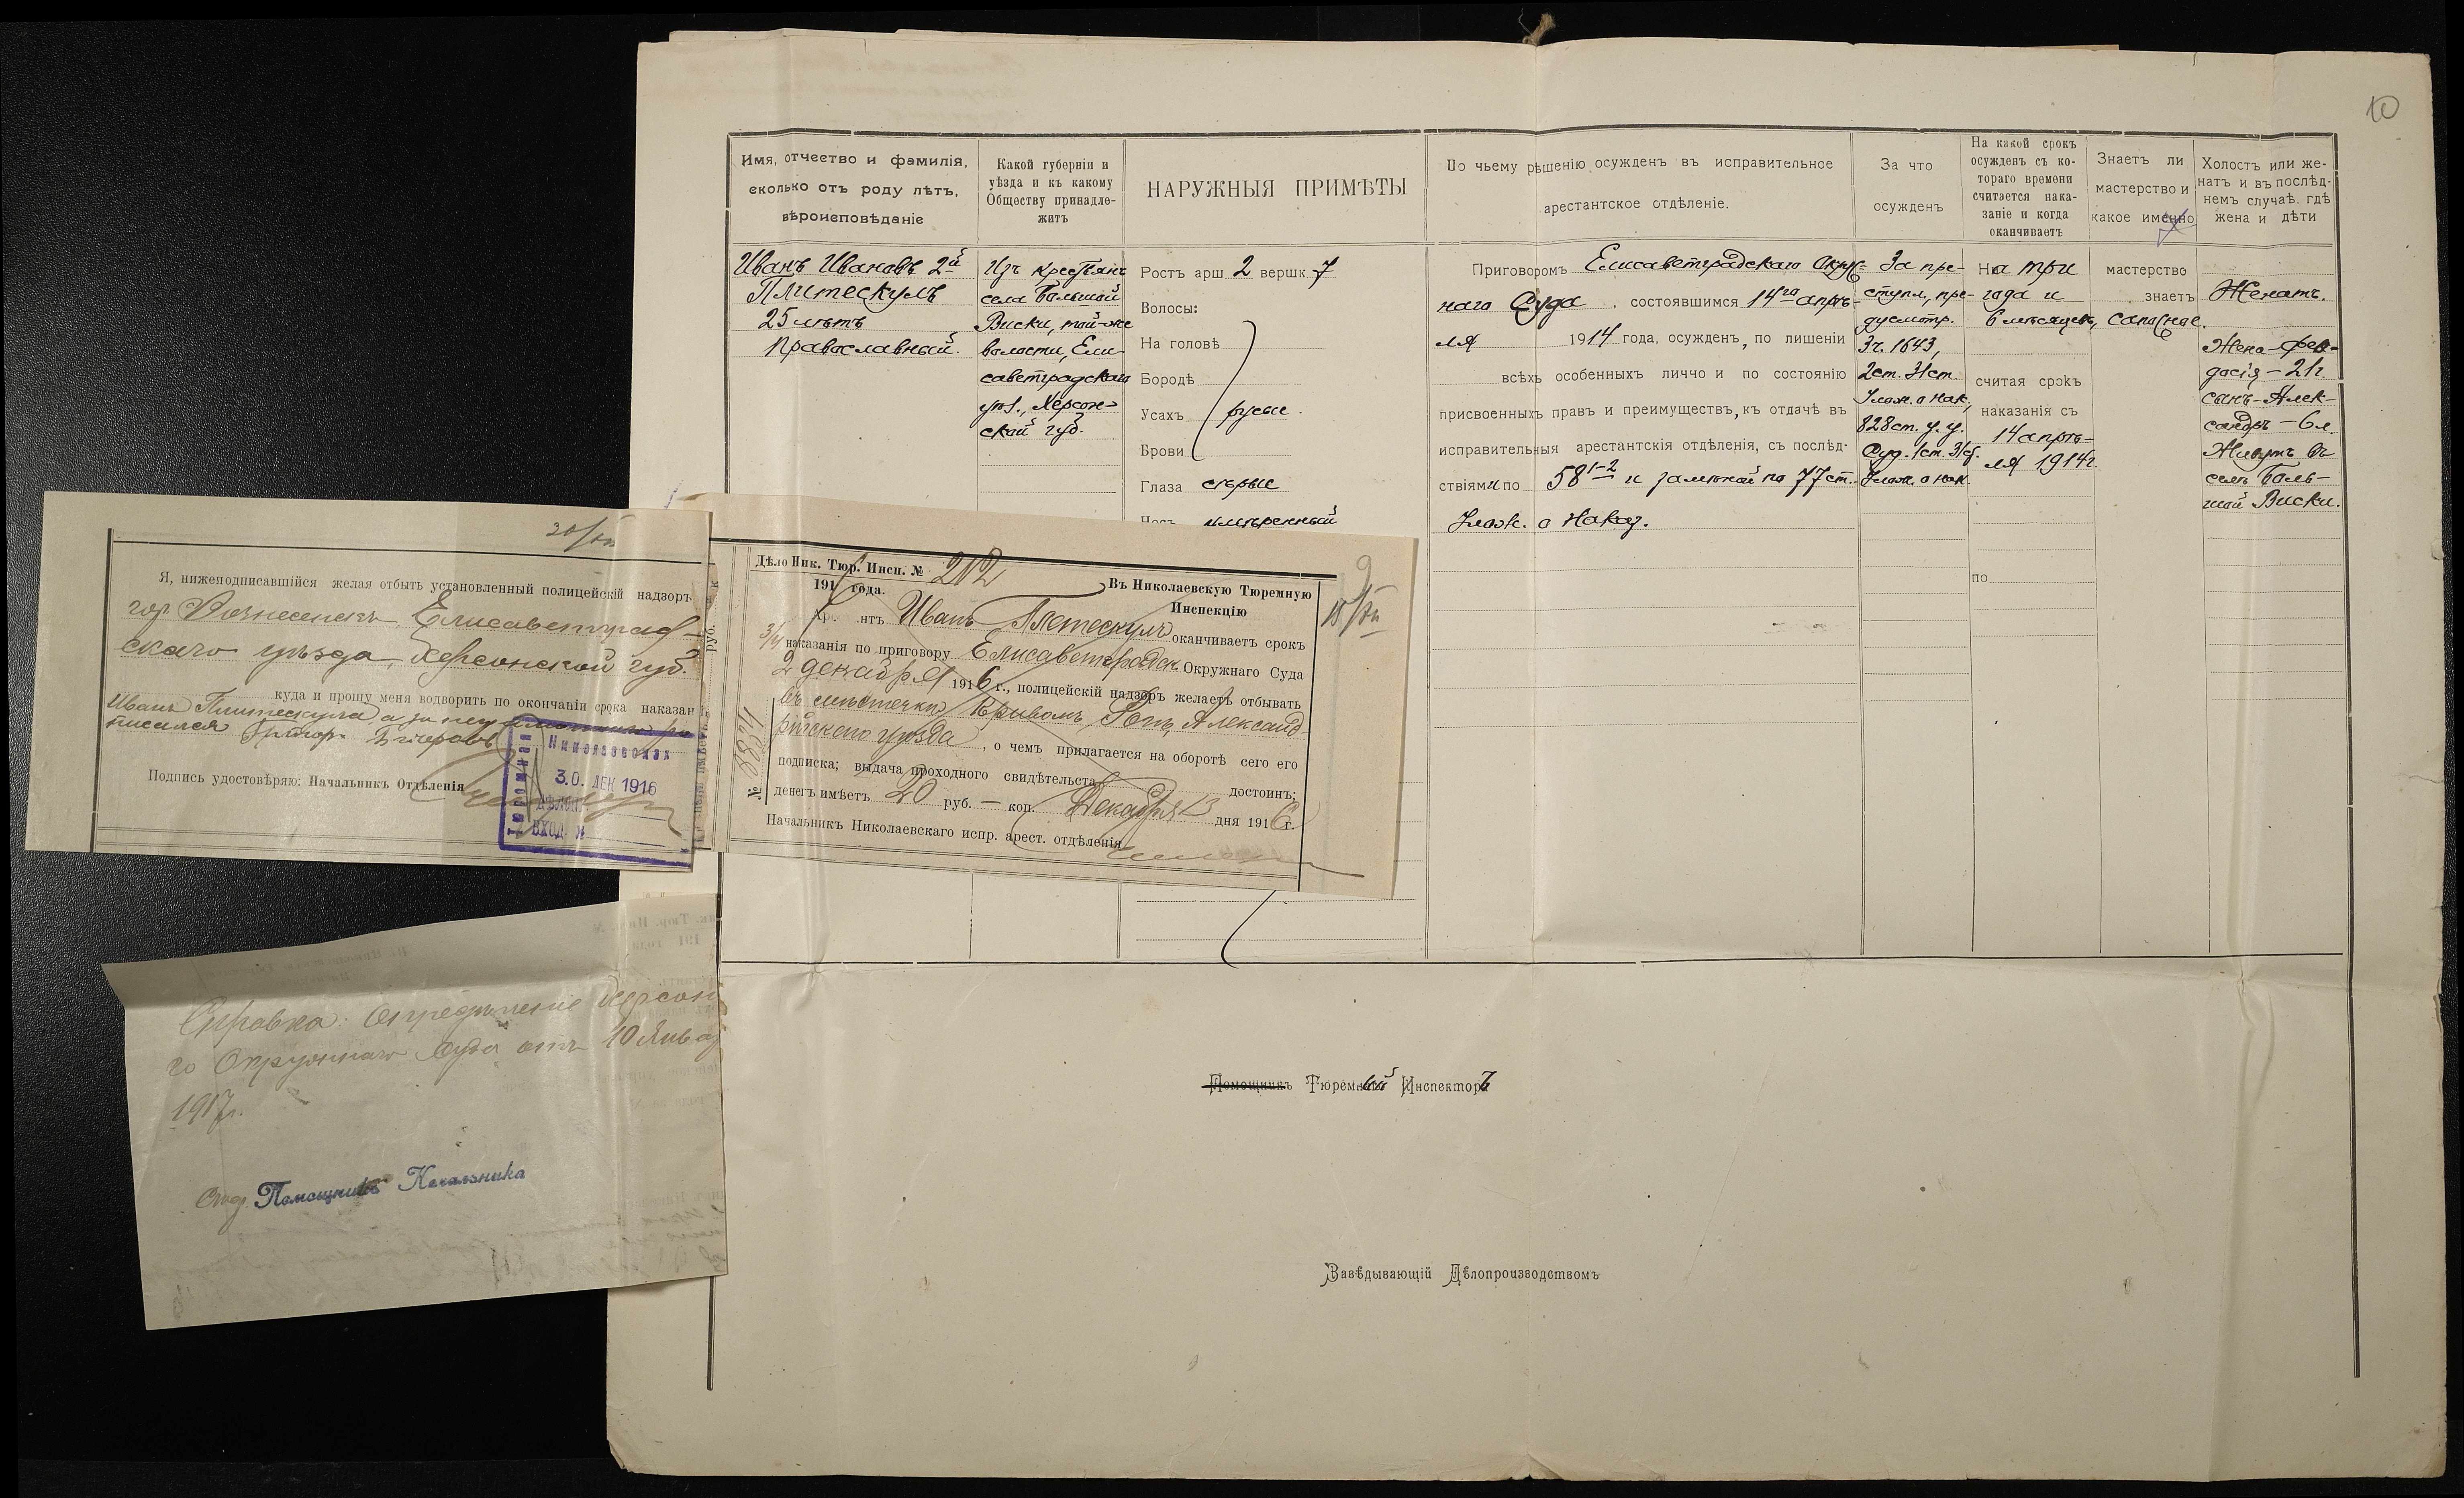 10
Имя, отчество и фамилія,
сколько отъ роду лѣтъ,
вѣроисповѣданіе
Какой губерніи и
уѣзда и къ какому
Обществу принадле-
житъ
НАРУЖНЫЯ ПРИМѢТЫ
По чьему рѣшенію осужденъ въ исправительное
арестантское отдѣленіе.
За что
осужденъ
На какой срокъ
осужденъ съ ко-
тораго времени
считается нака-
заніе и когда
оканчиваетъ
Знаетъ ли
мастерство и
какое именно
Холостъ или же-
натъ и въ послѣд-
немъ случаѣ, гдѣ
жена и дѣти
Иванъ Ивановъ 2й
Плитескулъ
25 лѣтъ
Православный.
Изъ крестьянъ
села Большой
Виски, той-же
волости, Ели-
саветградскаго
уѣз., Херсон-
ской губ.
Ростъ арш 2 вершк 7
Волосы:
На головѣ
Бородѣ
Усахъ русые.
Брови
Глаза сѣрые
Носъ умѣренный
Приговоромъ Елисаветградскаго Окруж-
наго Суда, состоявшимся 14го апрѣ-
ля 1914 года, осужденъ, по лишеніи
всѣхъ особенныхъ лично и по состоянію
присвоенныхъ правъ и преимуществъ, къ отдачѣ въ
исправительныя арестантскія отдѣленія, съ послѣд-
ствіями по 58 1-2 и замѣной по 77 ст.
Улож. о Наказ.
За пре-
ступл, пре-
дусмотр.
3 ч. 1643,
2 ст. 31 ст.
Улож. о нак,
828 ст. у. у.
Суд. 1 ст. 31 с.
Улож. о нак.
На три
года и
6 мѣсяцевъ,
считая срокъ
наказанія съ
14 апрѣ-
ля 1914 г.
по
мастерство
знаетъ
сапожное.
Женатъ.
Жена-Фео-
досія - 21 г.
сынъ-Алек-
сандръ - 6 л.
Живутъ въ
селѣ Боль-
шой Виски.
30/XII
Я, нижеподписавшійся желая отбыть установленный полицейскій надзоръ
гор Вознесенскъ Елисаветград-
скаго уѣзда, Херсонской губ.
куда и прошу меня водворить по окончаніи срока наказан
Иванъ Плитескулъ а за негр
писался
Подпись удостовѣряю: Начальникъ Отдѣленія
Николаевская
Тюремная
30. ДЕК 1916
ВХОД. №
руб.
Дѣло Ник. Тюр. Инсп. № 202
191 года.
Въ Николаевскую Тюремную
Инспекцію
9
Ар. нтъ Иванъ Плетескулъ оканчиваетъ срокъ
наказанія по приговору Елисаветградск. Окружнаго Суда
2 декабря 1916 г., полицейскій надзоръ желаетъ отбывать
въ мѣстечкѣ Кривомъ Рогѣ, Александ-
рійскаго уѣзда, о чемъ прилагается на оборотѣ сего его
подписка; выдача проходного свидѣтельства достоинъ;
денегъ имѣетъ 20 руб. — коп. Декабря 13 дня 1916 г.
Начальникъ Николаевскаго испр. арест. отдѣленія
№
Справка: Опредѣленіе Херсон
го Окружнаго Суда отъ 10 Январ
1917 г.
Помощникъ Начальника
Помощникъ Тюремный Инспекторъ
Завѣдывающій Дѣлопроизводствомъ